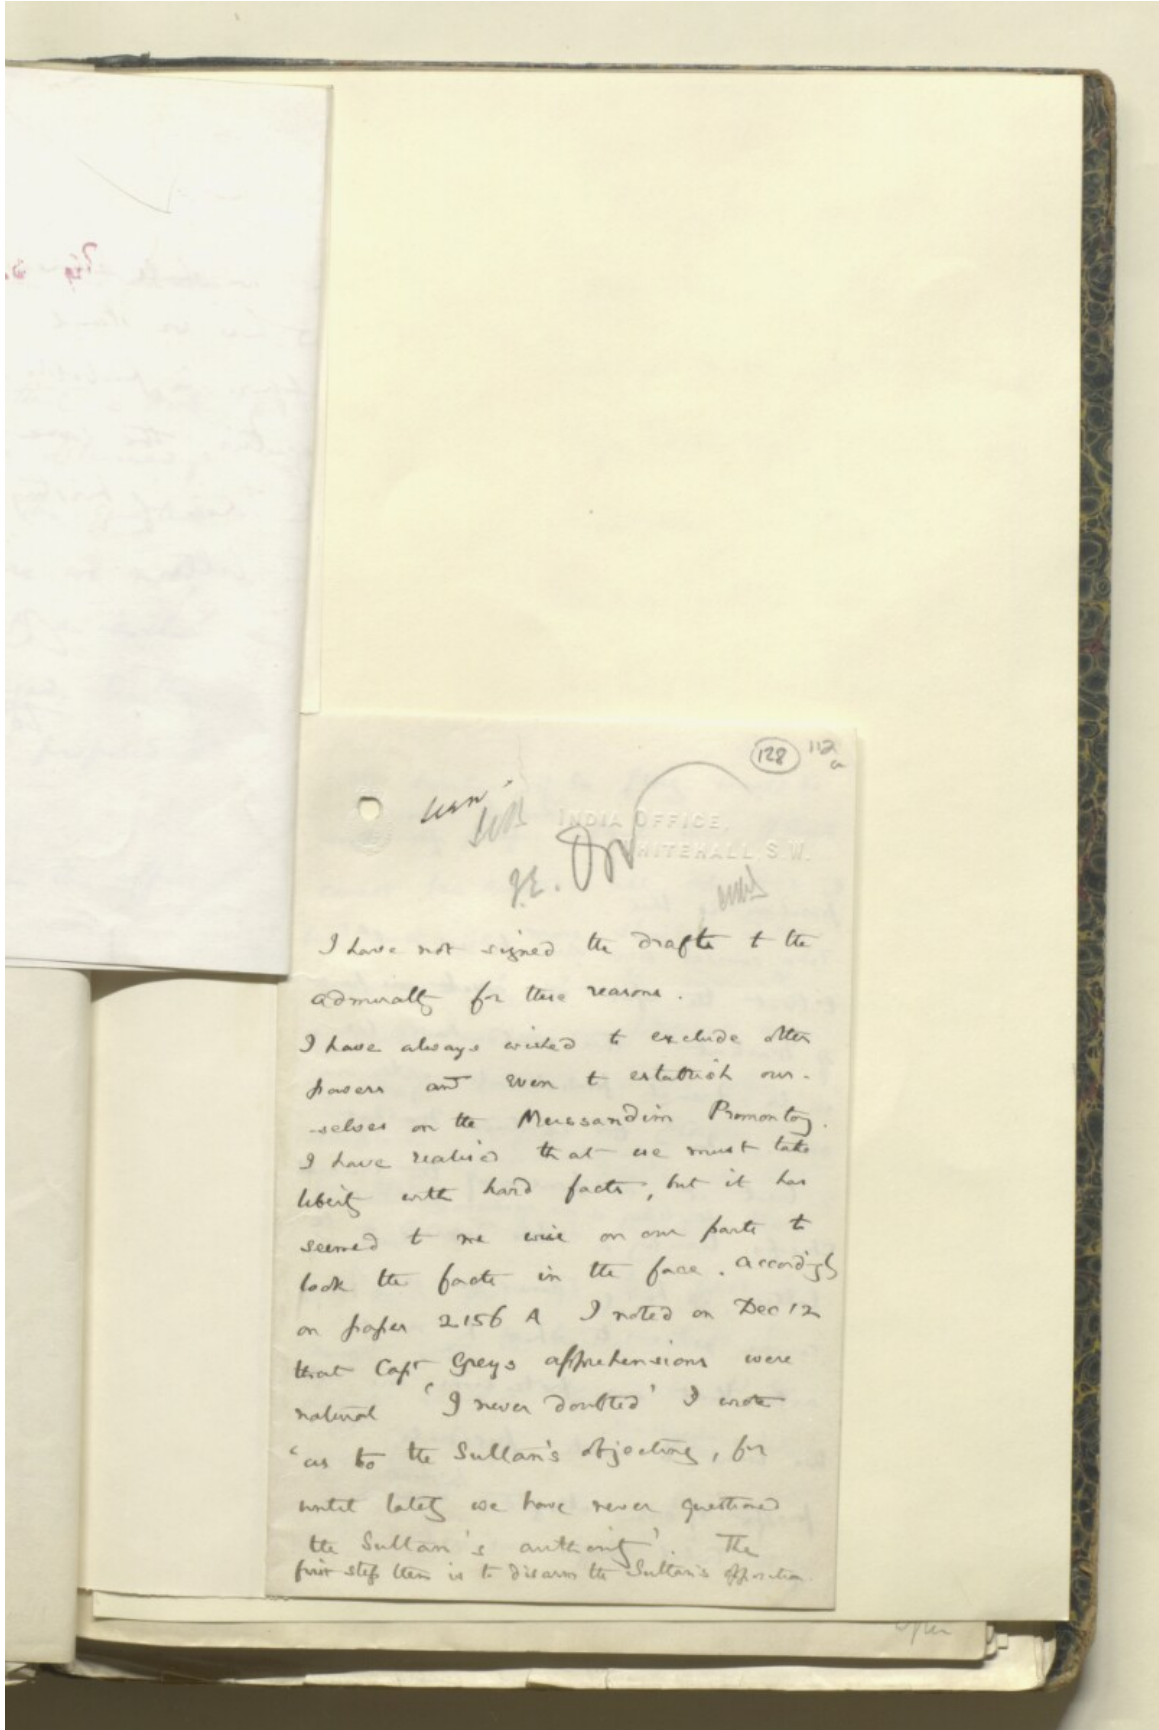 128 112
a
INDIA OFFICE,
WHITEHALL, S.W.
I have not signed the drafts to the
Admiralty for these reasons.
I have always wished to exclude other
powers and even to establish our-
-selves on the Mussandim Promontory.
I have realised that we must take
liberty with hard facts, but it has
seemed to me wise on our parts to
look the facts in the face. Accordingly
on paper 2156 A I noted on Dec 12
that Capt Greys apprehensions were
natural 'I never doubted' I wrote
'as to the Sultan's objecting, for
until lately we have never questioned
the Sultan's authority'. The
first step then is to disarm the Sultan's opposition.